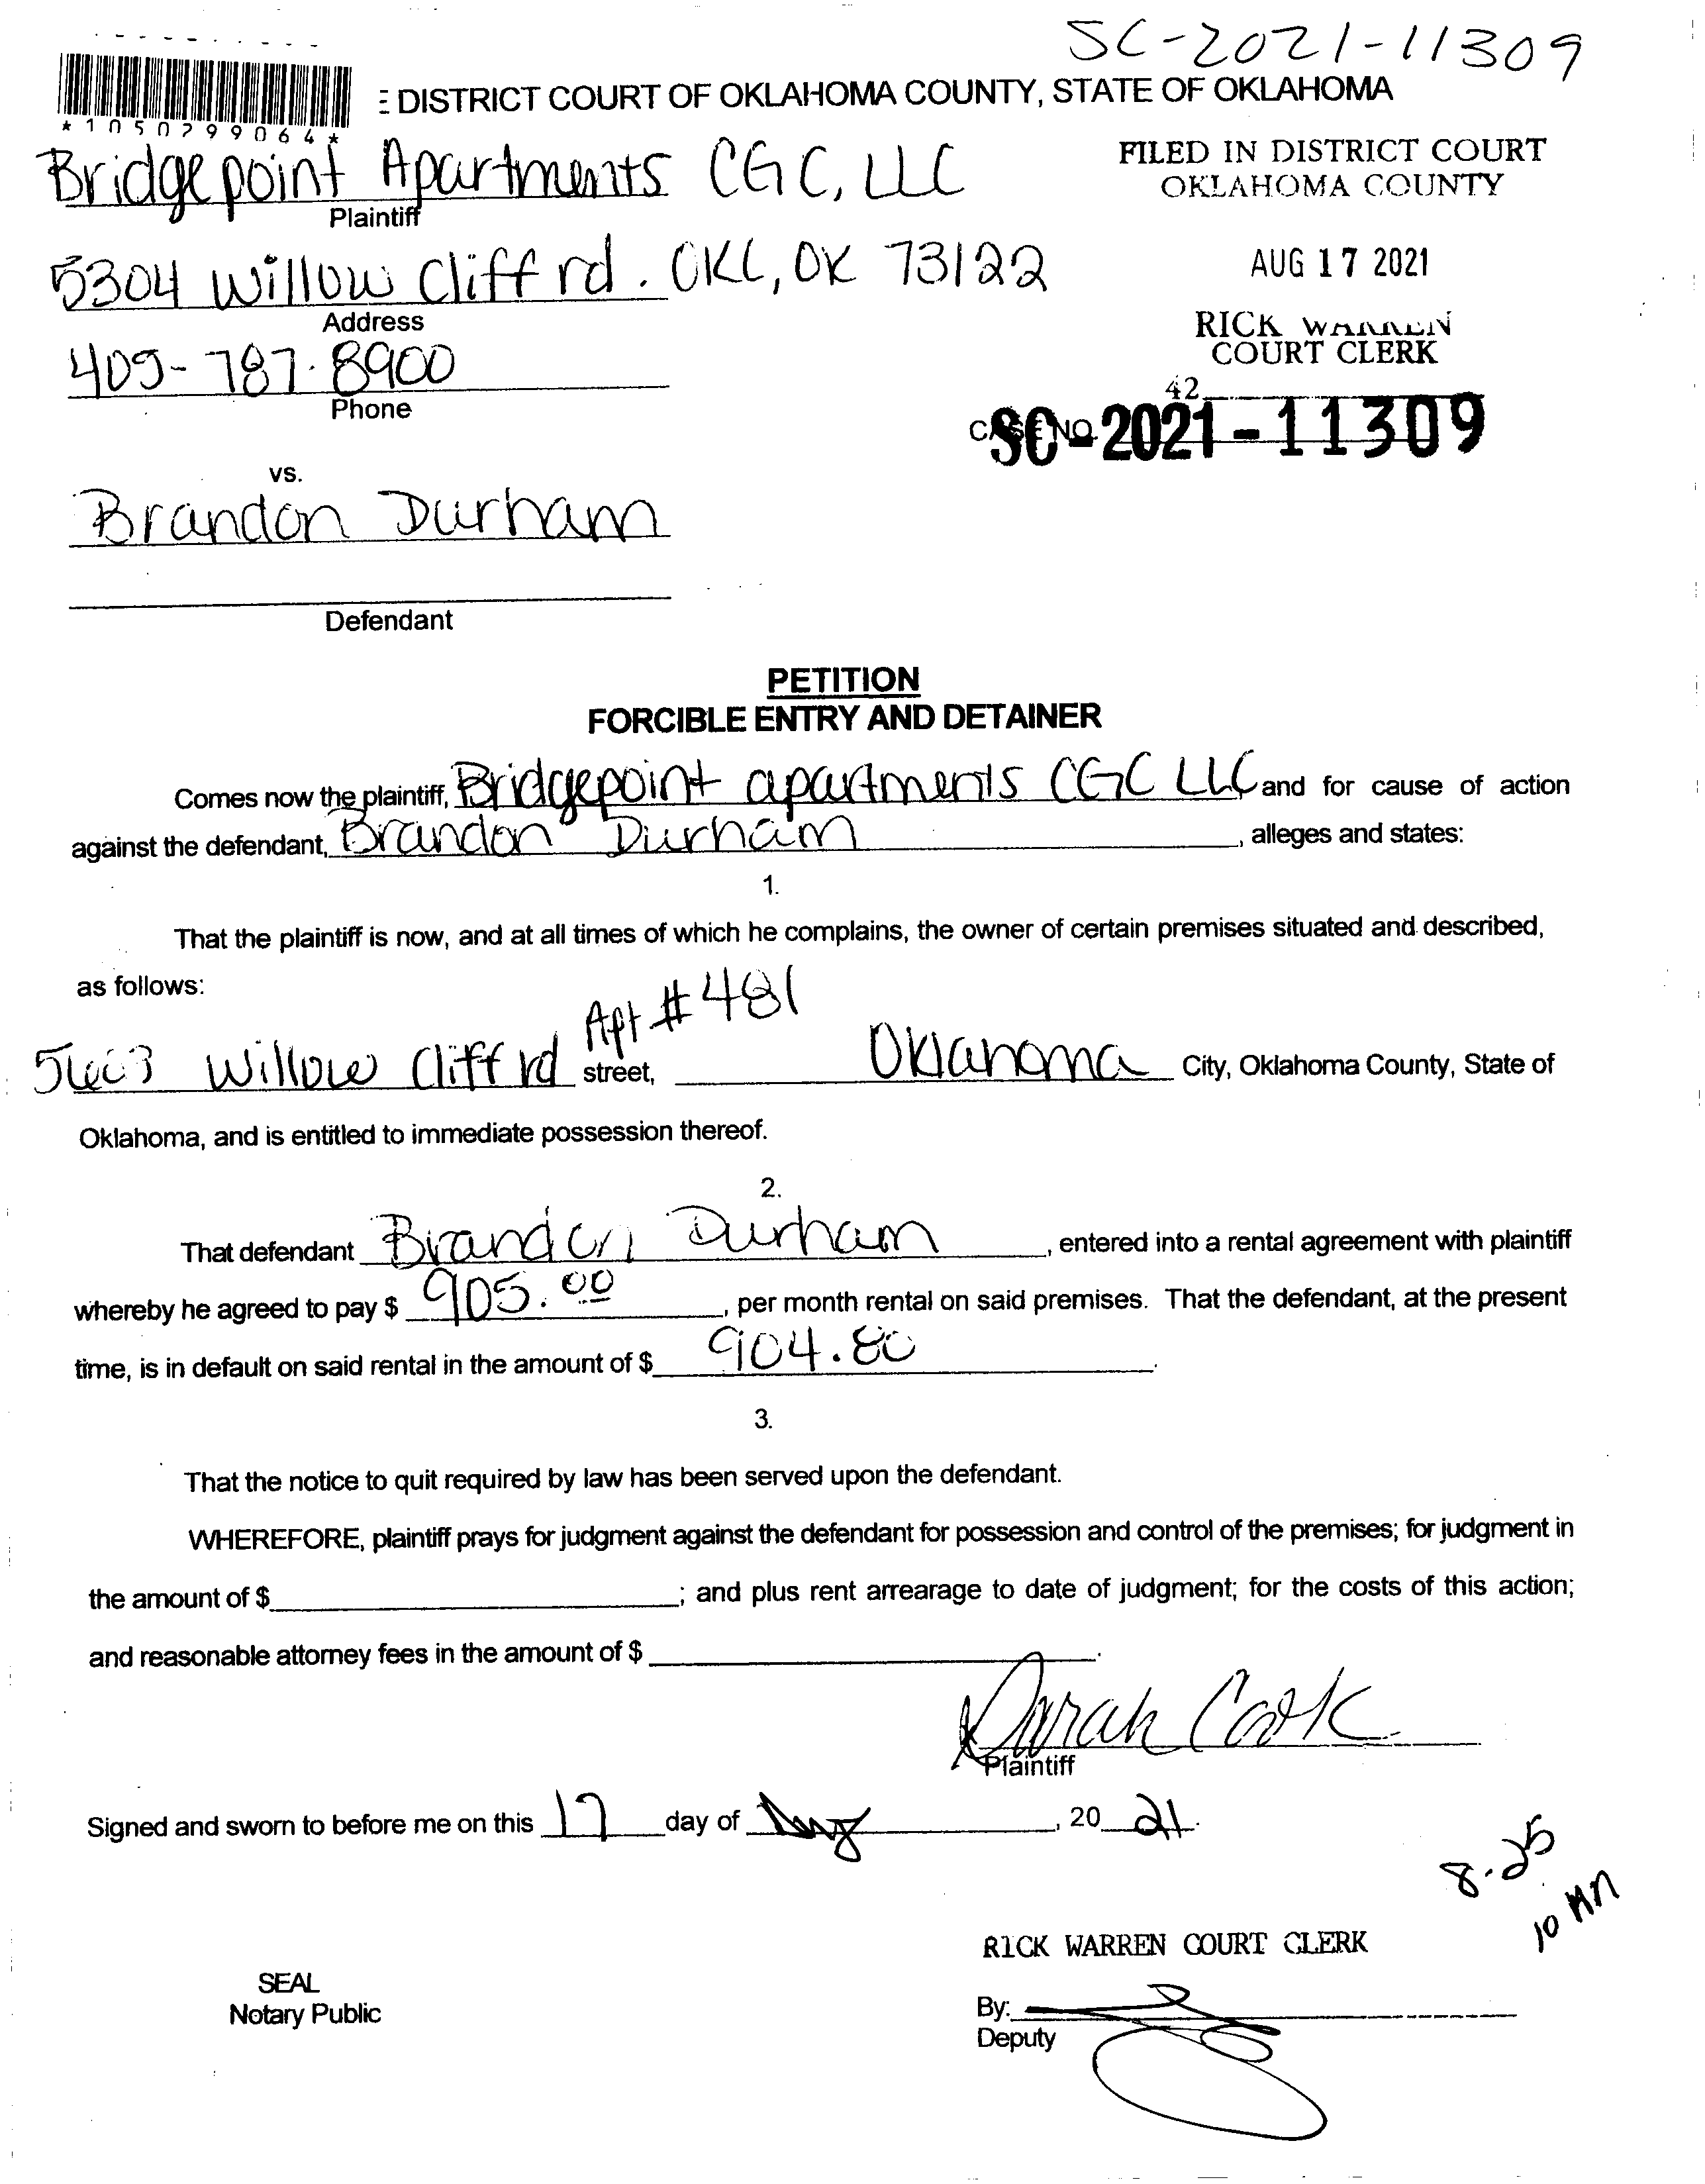 SC-2021-11309
E DISTRICT COURT OF OKLAHOMA COUNTY, STATE OF OKLAHOMA
*1050299064*
Bridgepoint Apartments CGC, LLC
Plaintiff
FILED IN DISTRICT COURT
OKLAHOMA COUNTY
5304 Willow Cliff rd. OKC, OK 73122
Address
AUG 17 2021
405-787-8900
Phone
RICK WARREN
COURT CLERK
42
CASE NO. SC-2021-11309
vs.
Brandon Durham
Defendant
PETITION
FORCIBLE ENTRY AND DETAINER
Comes now the plaintiff, Bridgepoint apartments CGC LLC and for cause of action
against the defendant, Brandon Durham, alleges and states:
1.
That the plaintiff is now, and at all times of which he complains, the owner of certain premises situated and described,
as follows:
Apt #481
Willow Cliff rd street, Oklahoma City, Oklahoma County, State of
Oklahoma, and is entitled to immediate possession thereof.
2.
That defendant Brandon Durham, entered into a rental agreement with plaintiff
whereby he agreed to pay $ 905.00, per month rental on said premises. That the defendant, at the present
time, is in default on said rental in the amount of $ 904.80.
3.
That the notice to quit required by law has been served upon the defendant.
WHEREFORE, plaintiff prays for judgment against the defendant for possession and control of the premises; for judgment in
the amount of $ ; and plus rent arrearage to date of judgment; for the costs of this action;
and reasonable attorney fees in the amount of $ .
Sarah Cook
Plaintiff
Signed and sworn to before me on this 17 day of Aug, 20 21.
8.25
10 AM
RICK WARREN COURT CLERK
SEAL
Notary Public
By:
Deputy